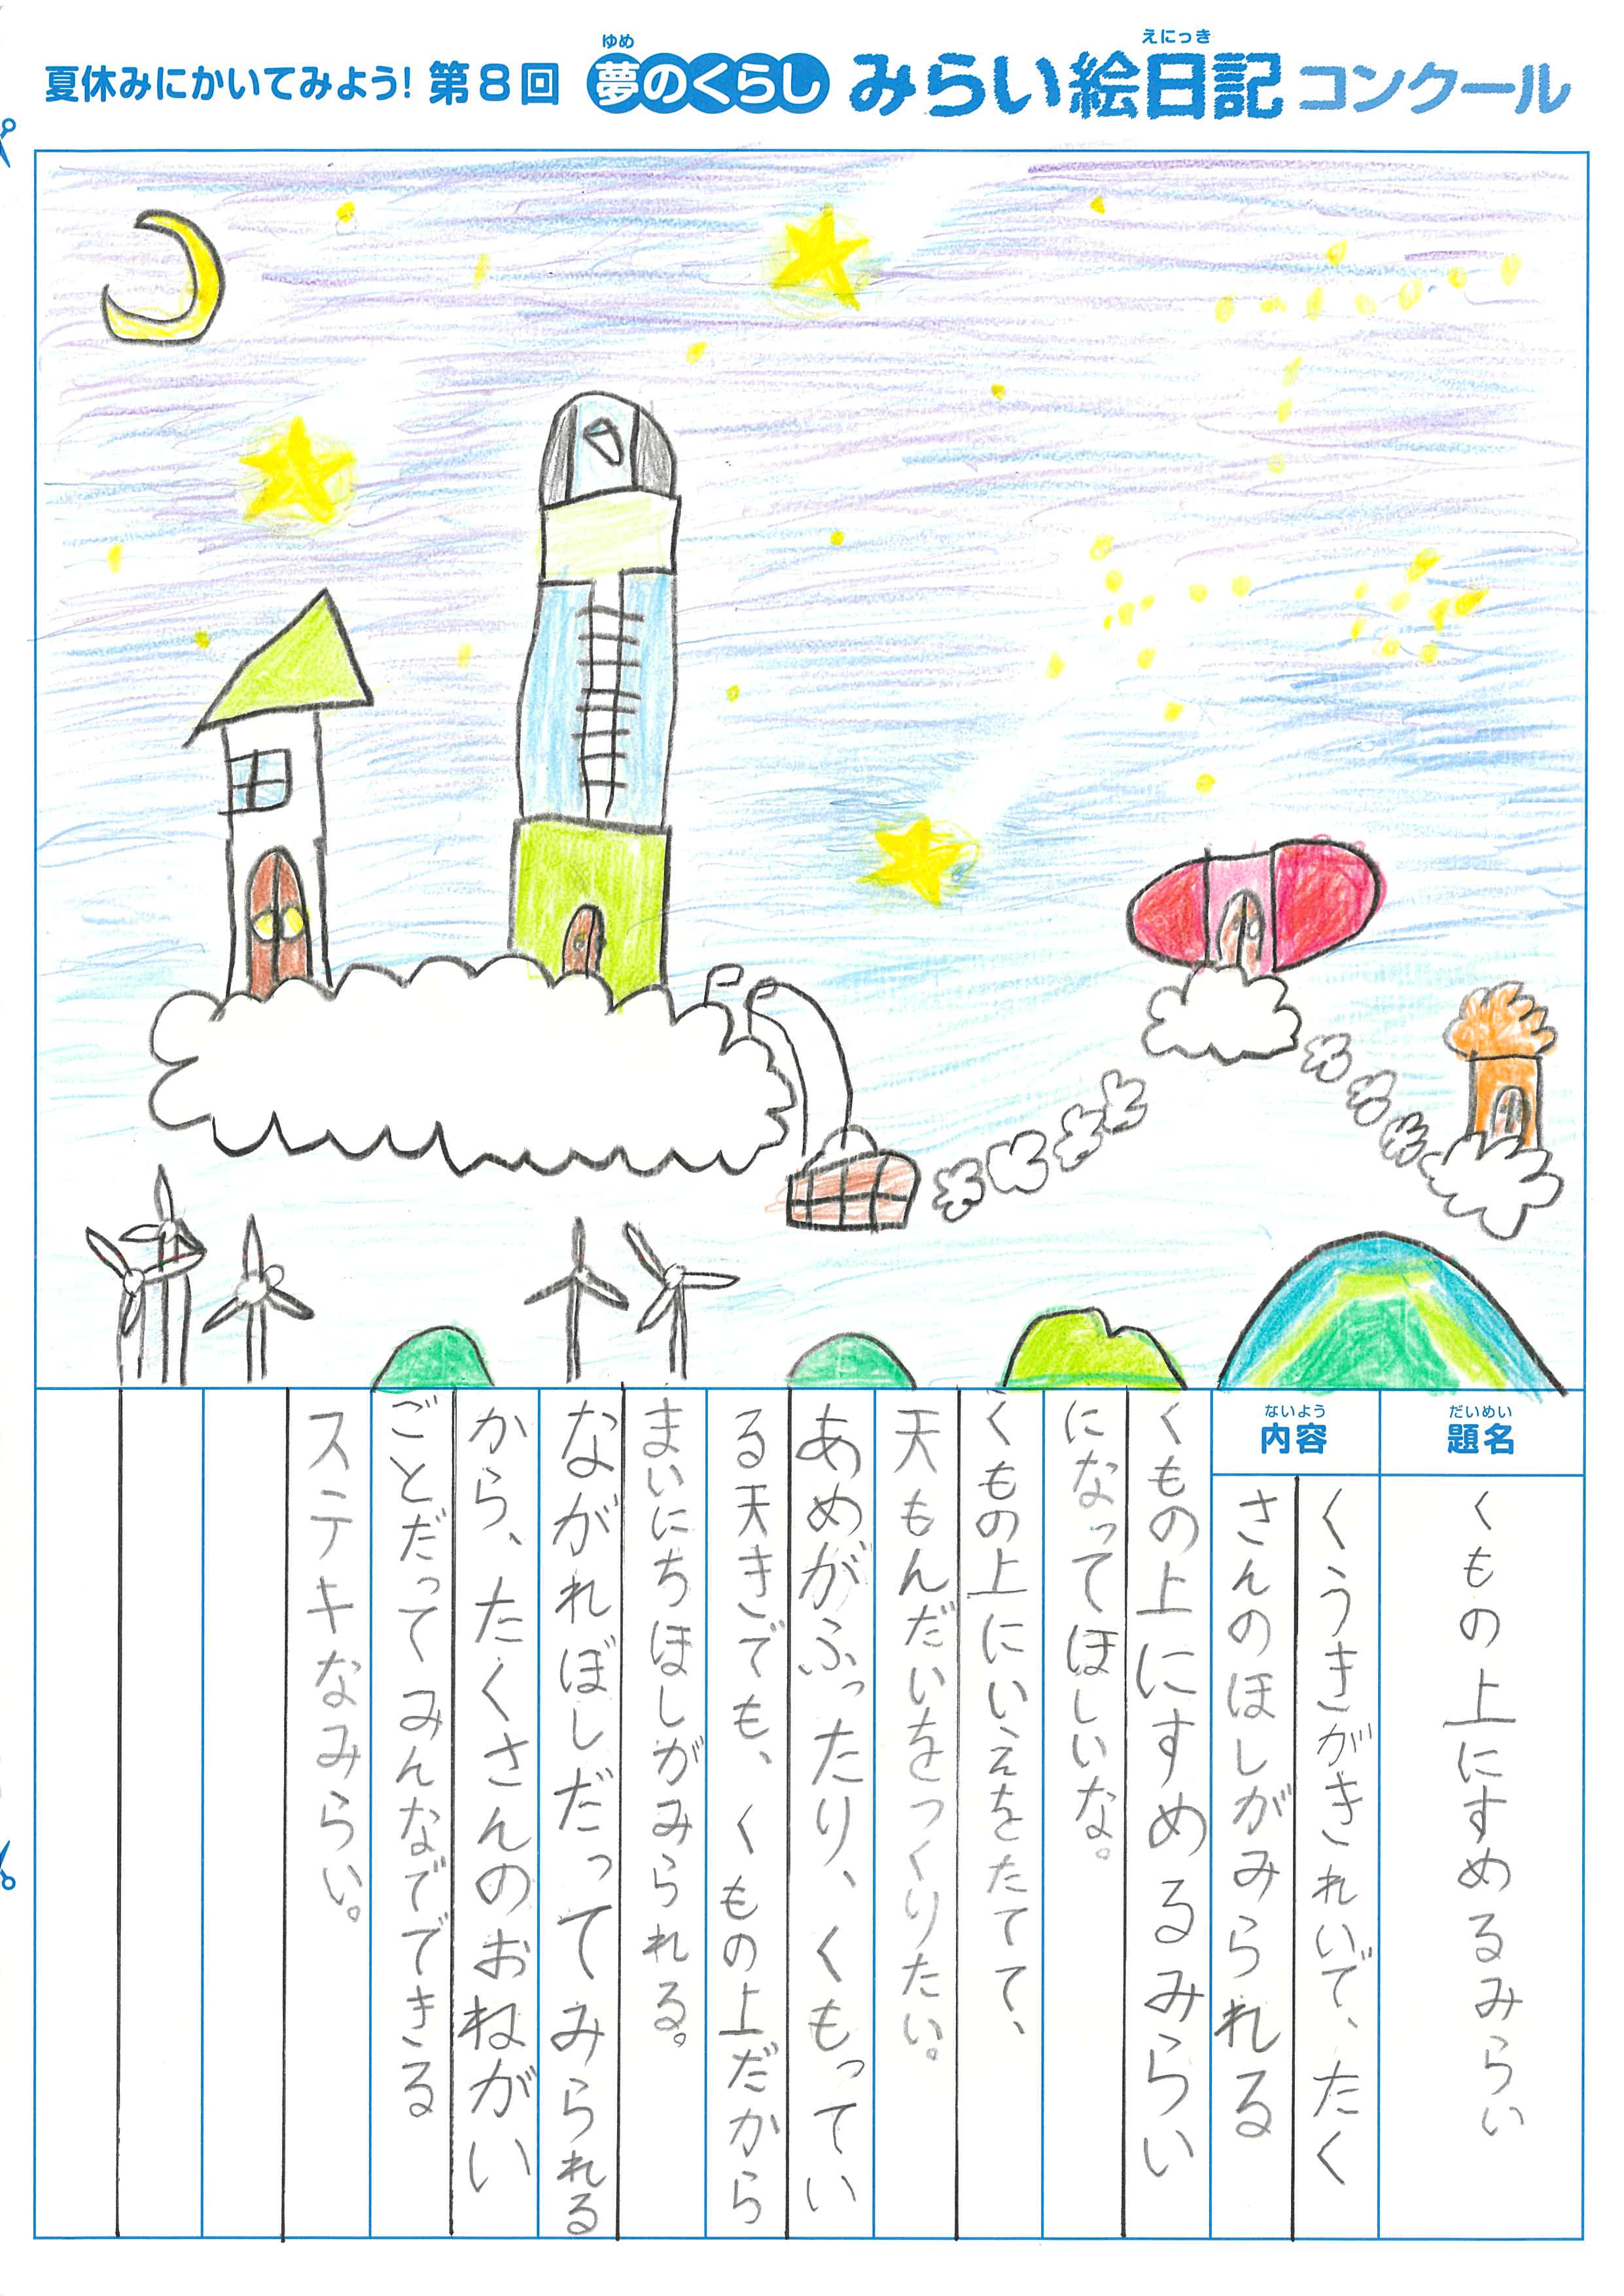 夏休みにかいてみよう! 第8回 夢のくらし みらい絵日記 コンクール
ゆめ
えにっき
だいめい
題名
くもの上にすめるみらい
ないよう
内容
くうきがきれいで、たく
さんのほしがみられる
くもの上にすめるみらい
になってほしいな。
くもの上にいえをたてて、
天もんだいをつくりたい。
あめがふったり、くもってい
る天きでも、くもの上だから
まいにちほしがみられる。
ながれぼしだってみられる
から、たくさんのおねがい
ごとだってみんなでできる
ステキなみらい。